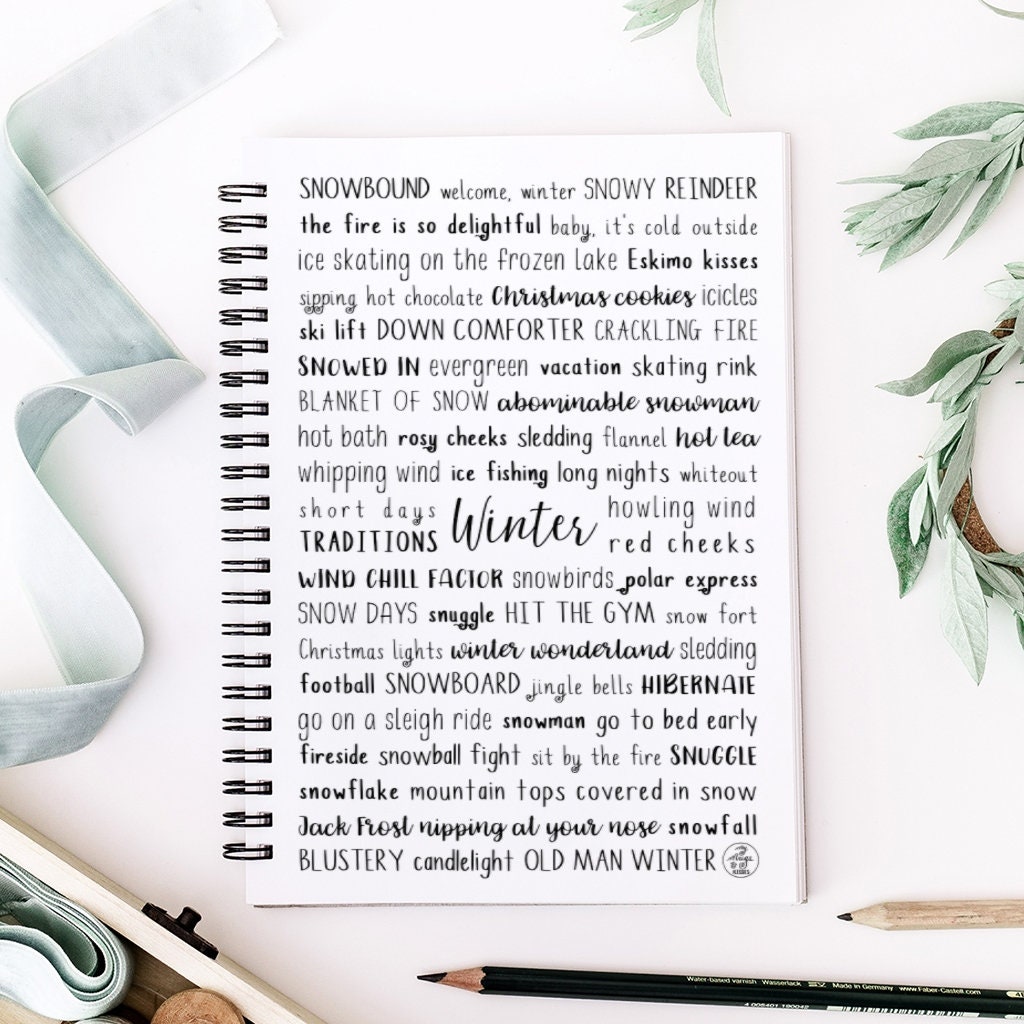 SNOWBOUND welcome, winter SNOWY REINDEER
the fire is so delightful baby, it's cold outside
ice skating on the frozen lake Eskimo kisses
sipping hot chocolate Christmas cookies icicles
ski lift DOWN COMFORTER CRACKLING FIRE
SNOWED IN evergreen vacation skating rink
BLANKET OF SNOW abominable snowman
hot bath rosy cheeks sledding flannel hot tea
whipping wind ice fishing long nights whiteout
short days Winter howling wind
TRADITIONS red cheeks
WIND CHILL FACTOR snowbirds polar express
SNOW DAYS snuggle HIT THE GYM snow fort
Christmas lights winter wonderland sledding
football SNOWBOARD jingle bells HIBERNATE
go on a sleigh ride snowman go to bed early
fireside snowball fight sit by the fire SNUGGLE
snowflake mountain tops covered in snow
Jack Frost nipping at your nose snowfall
BLUSTERY candlelight OLD MAN WINTER
Water-based varnish Wasserlack
Made in Germany www.Faber-Castell.com